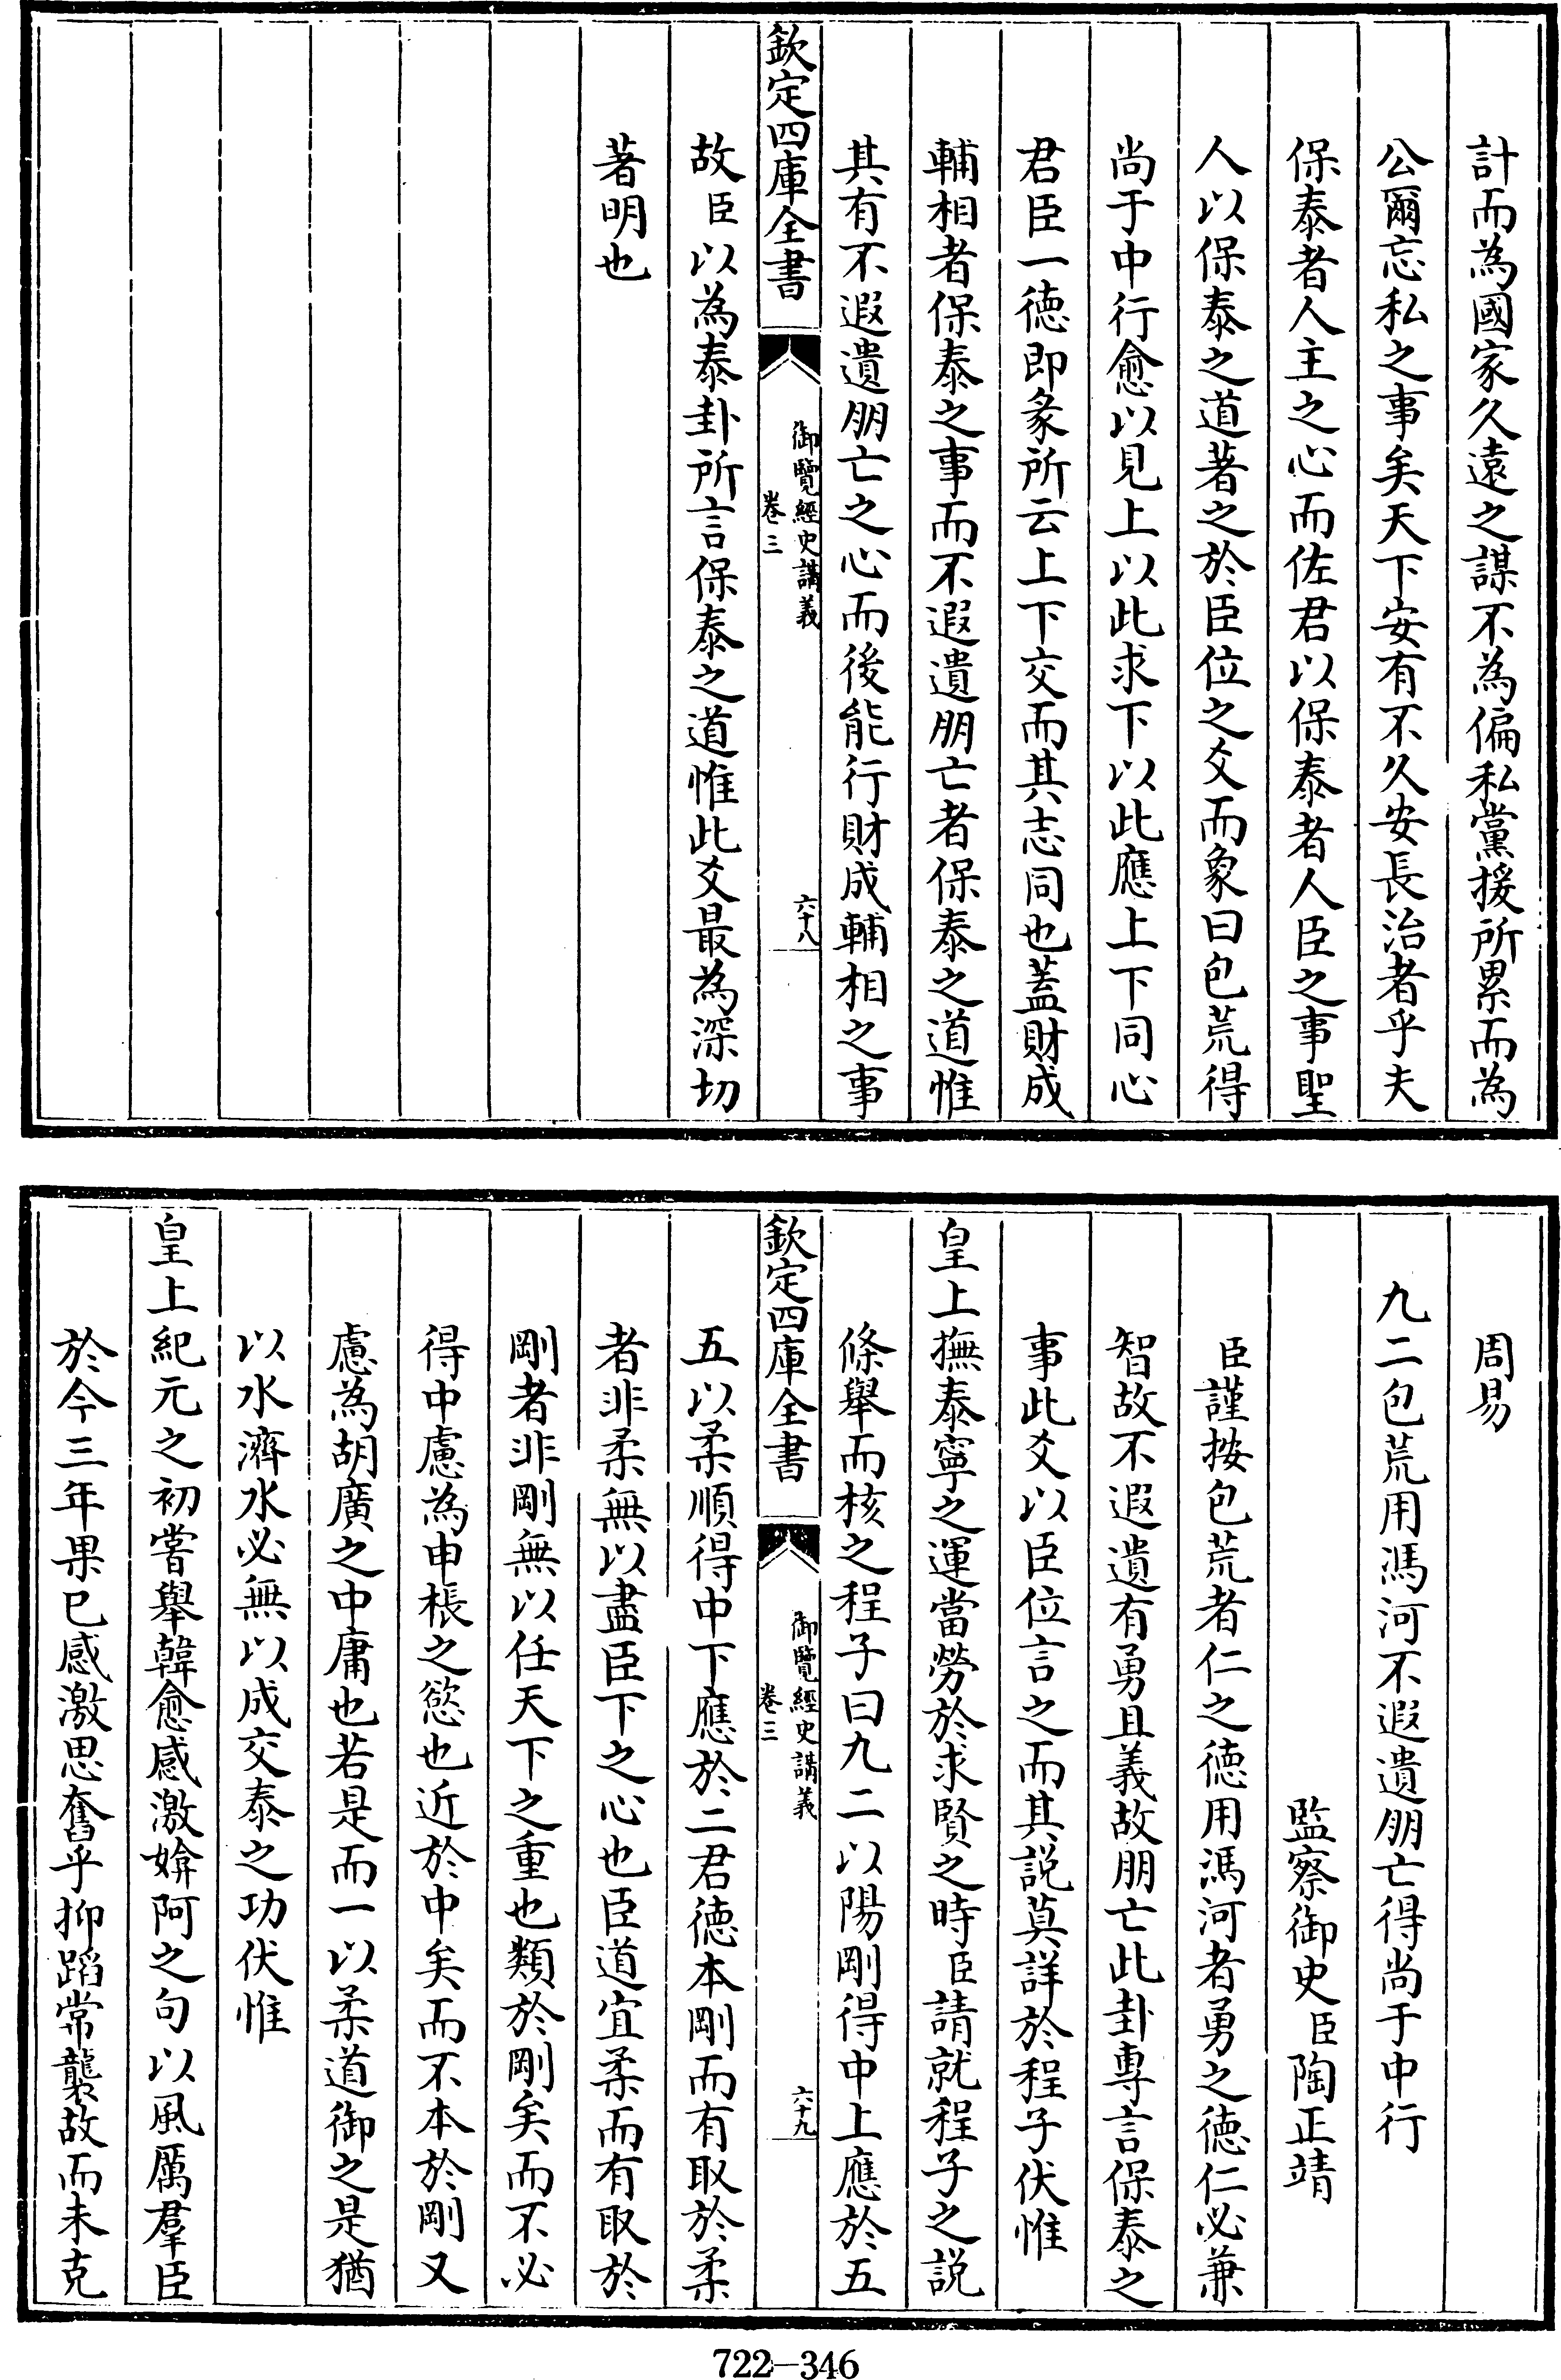 計而為國家久遠之謀不為偏私黨援所累而為
公爾忘私之事矣天下安有不久安長治者乎夫
保泰者人主之心而佐君以保泰者人臣之事聖
人以保泰之道著之於臣位之爻而象曰包荒得
尚于中行愈以見上以此求下以此應上下同心
君臣一德即彖所云上下交而其志同也蓋財成
輔相者保泰之事而不遐遺朋亡者保泰之道惟
其有不遐遺朋亡之心而後能行財成輔相之事
欽定四庫全書
御覽經史講義
卷三
六十八
故臣以為泰卦所言保泰之道惟此爻最為深切
著明也
周易
九二包荒用馮河不遐遺朋亡得尚于中行
監察御史臣陶正靖
臣謹按包荒者仁之德用馮河者勇之德仁必兼
智故不遐遺有勇且義故朋亡此卦專言保泰之
事此爻以臣位言之而其說莫詳於程子伏惟
皇上撫泰寧之運當勞於求賢之時臣請就程子之說
條舉而核之程子曰九二以陽剛得中上應於五
欽定四庫全書
御覽經史講義
卷三
六十九
五以柔順得中下應於二君德本剛而有取於柔
者非柔無以盡臣下之心也臣道宜柔而有取於
剛者非剛無以任天下之重也類於剛矣而不必
得中慮為申棖之慾也近於中矣而不本於剛又
慮為胡廣之中庸也若是而一以柔道御之是猶
以水濟水必無以成交泰之功伏惟
皇上紀元之初嘗舉韓愈感激媕阿之句以風厲羣臣
於今三年果已感激思奮乎抑蹈常襲故而未克
722-346